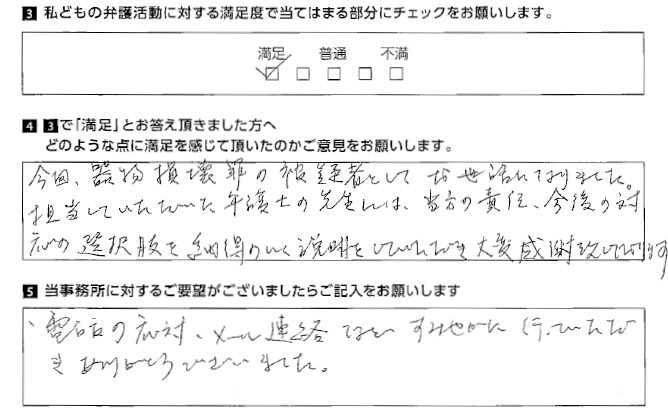 3 私どもの弁護活動に対する満足度で当てはまる部分にチェックをお願いします。
満足 普通 不満
4 3で「満足」とお答え頂きました方へ
どのような点に満足を感じて頂いたのかご意見をお願いします。
今回、器物損壊罪の被疑者として お世話になりました。
担当していただいた弁護士の先生には、当方の責任、今後の対
応の選択肢を納得のいく説明をしていただき大変感謝致しております
5 当事務所に対するご要望がございましたらご記入をお願いします
、電話の応対、メール連絡などすみやかに行っていただ
きありがとうございました。